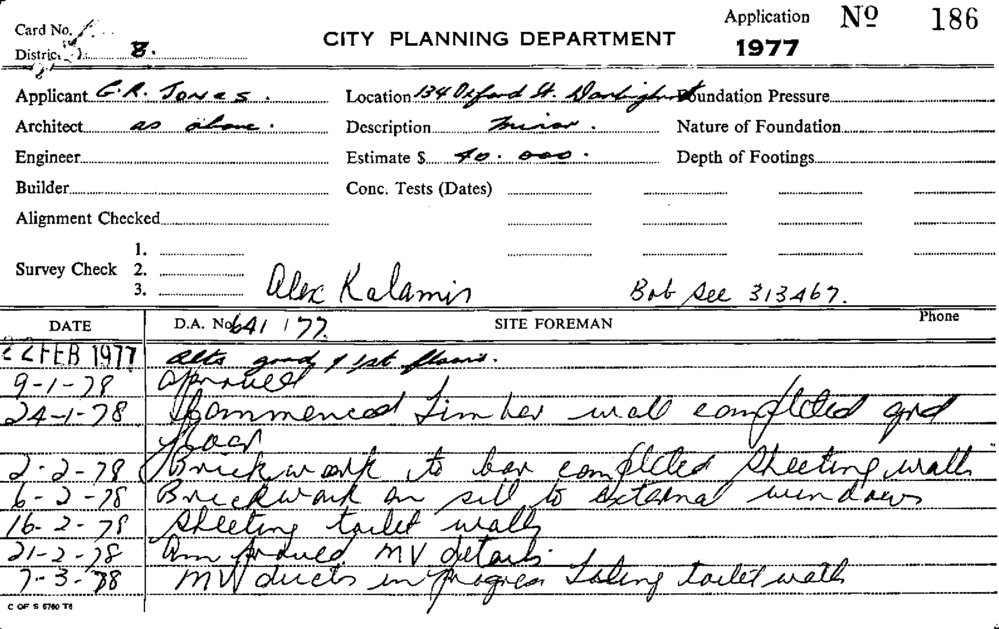 Card No. 1
Application No 186
District B.
CITY PLANNING DEPARTMENT
1977
Applicant G.R. Jones.
Location 134 Oxford St. Darlinghurst
Foundation Pressure
Architect as above.
Description minor.
Nature of Foundation
Engineer
Estimate $ 40.000.
Depth of Footings
Builder
Conc. Tests (Dates)
Alignment Checked
Survey Check 1.
2.
3.
Alex Kalamis
Bob See 313467.
DATE D.A. No 641/77. SITE FOREMAN Phone
22 FEB 1977 alts grnd & 1st floors.
9-1-78 approved
24-1-78 Commenced timber wall completed grd
floor
2-2-78 Brickwork to bar completed sheeting walls
6-2-78 Brickwork on sill to external windows
16-2-78 sheeting toilet walls
21-2-78 MV details.
7-3-78 MV ducts in progress tiling toilet walls
C OF S 6760 T6